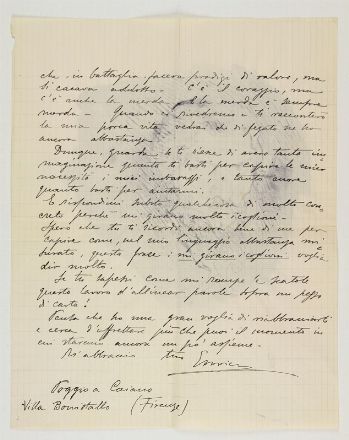 che in battaglia faceva prodigi di valore, ma
si cacava addosso — C'è il coraggio, ma
c'è anche la merda. E la merda è sempre
merda — Quando ci rivedremo e ti racconterò
la mia porca vita vedrai che di fegato ne ho
ancora abbastanza.
Dunque, guarda se ti riesce di avere tanta im-
maginazione quanta ti basti per capire le mie
necessità, i miei imbarazzi, e tanto cuore
quanto basti per aiutarmi.
E rispondimi subito qualchecosa di molto con-
creto perchè mi girano molto i coglioni —
Spero che tu ti ricordi ancora bene di me per
capire come, nel mio linguaggio abbastanza mi-
surato, questa frase: mi girano i coglioni voglia
dir molto.
Se tu sapessi come mi rompe le scatole
questo lavoro d'allinear parole sopra un pezzo
di carta!
Pensa che ho una gran voglia di riabbracciarti
e cerca d'affrettare più che puoi il momento in
cui staremo ancora un po' assieme.
Ti abbraccio tuo
Poggio a Caiano
Villa Bonistallo (Firenze)